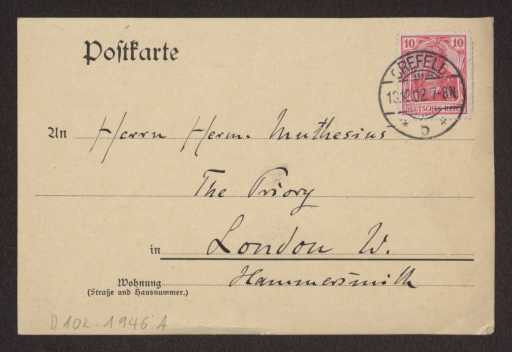 Postkarte
10 10
CREFELD
13.12.02 7-8N
DEUTSCHES REICH
* b *
An Herrn Herm. Muthesius
The Priory
in London W.
Wohnung
(Straße und Hausnummer.)
Hammersmith
D 102-1946 A